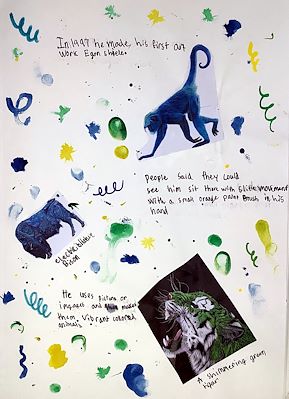 In 1997 he made his first art
work Egon shiele.
People said they could
see him sit there with a little movement
with a small orange paint brush in his
hand
electric blue
Bison
He uses picture on
and makes
them vibrant colored
animals
A shimmering green
tiger